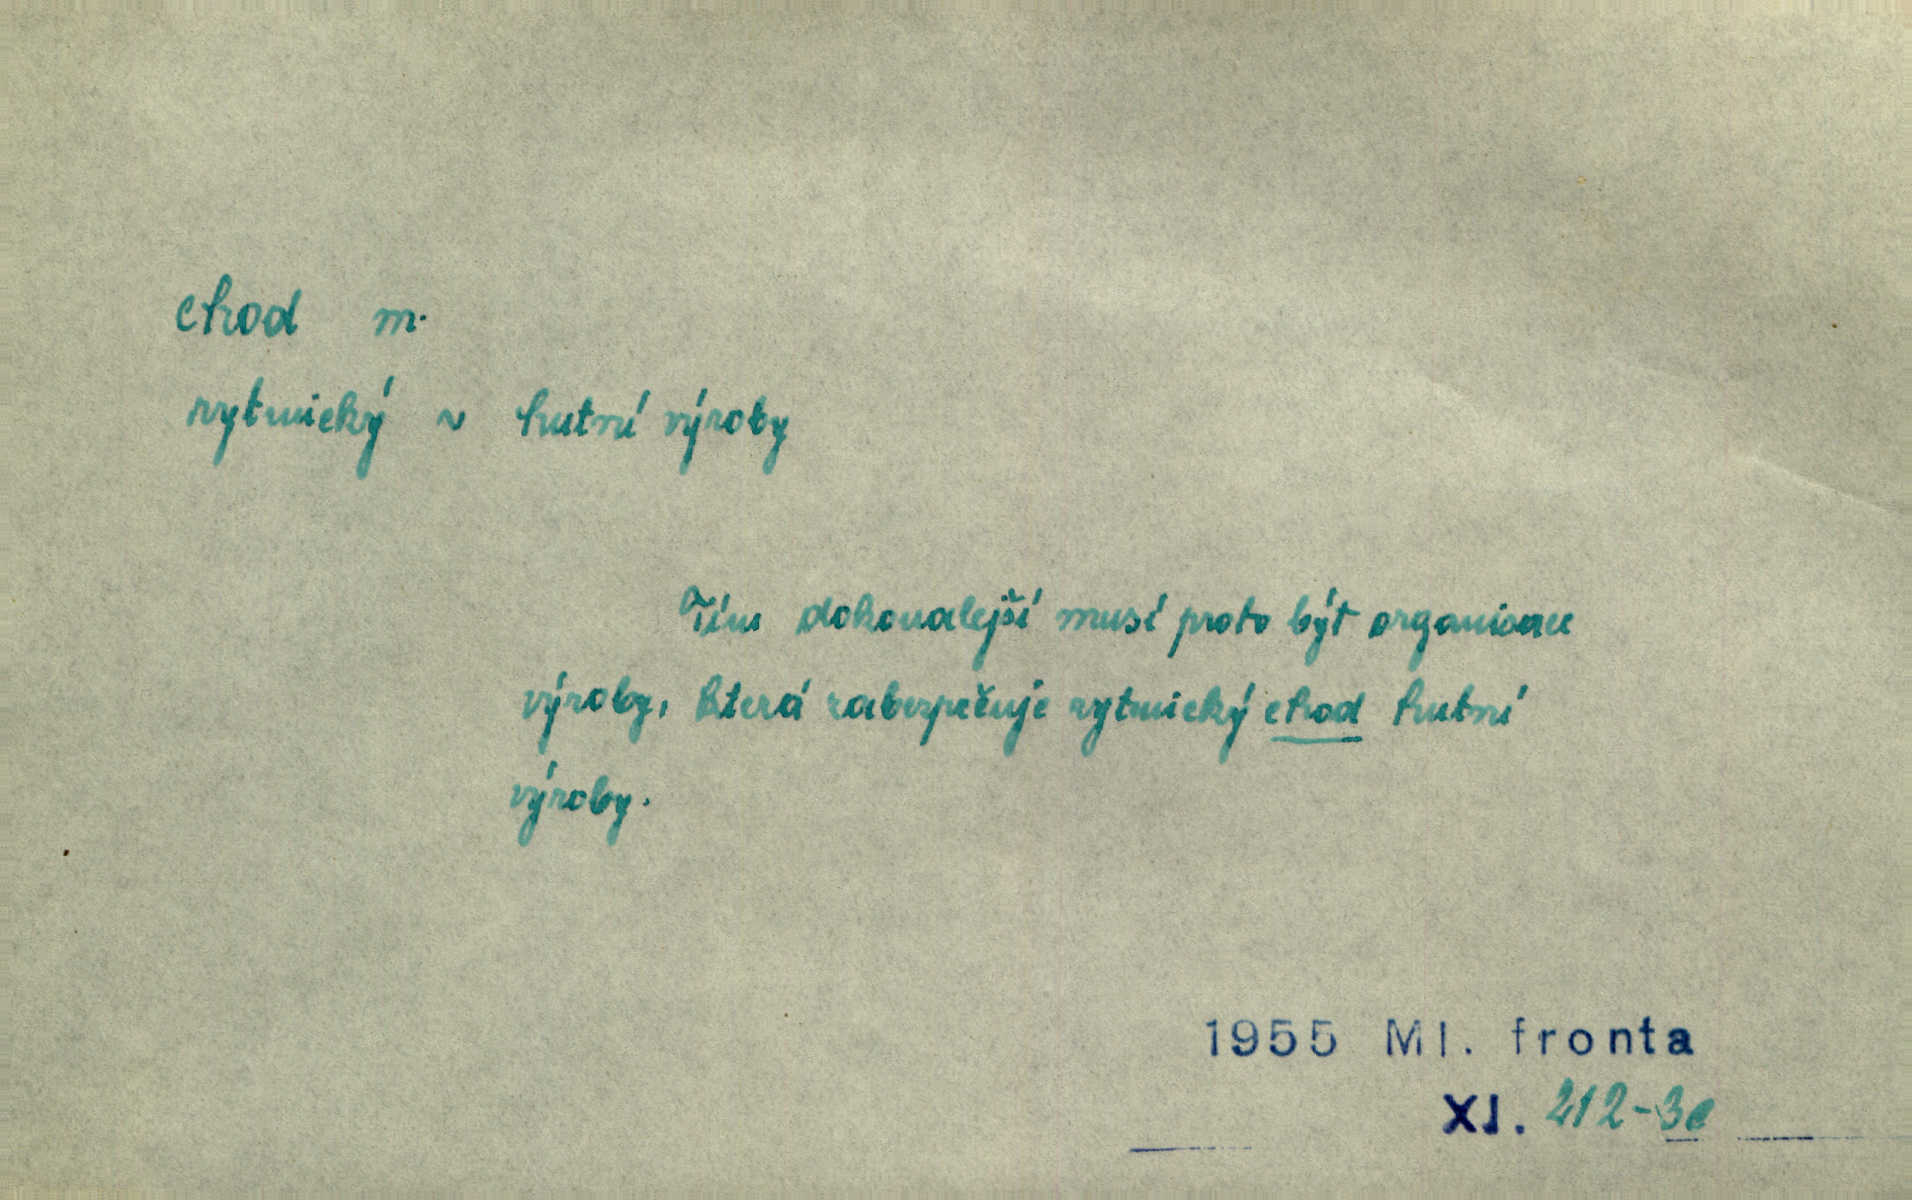 chod m.
rytmický ~ hutní výroby
Tím dokonalejší musí proto být organisace
výroby, která zabezpečuje rytmický chod hutní
výroby.
1955 Ml. fronta
XI. 212-3e